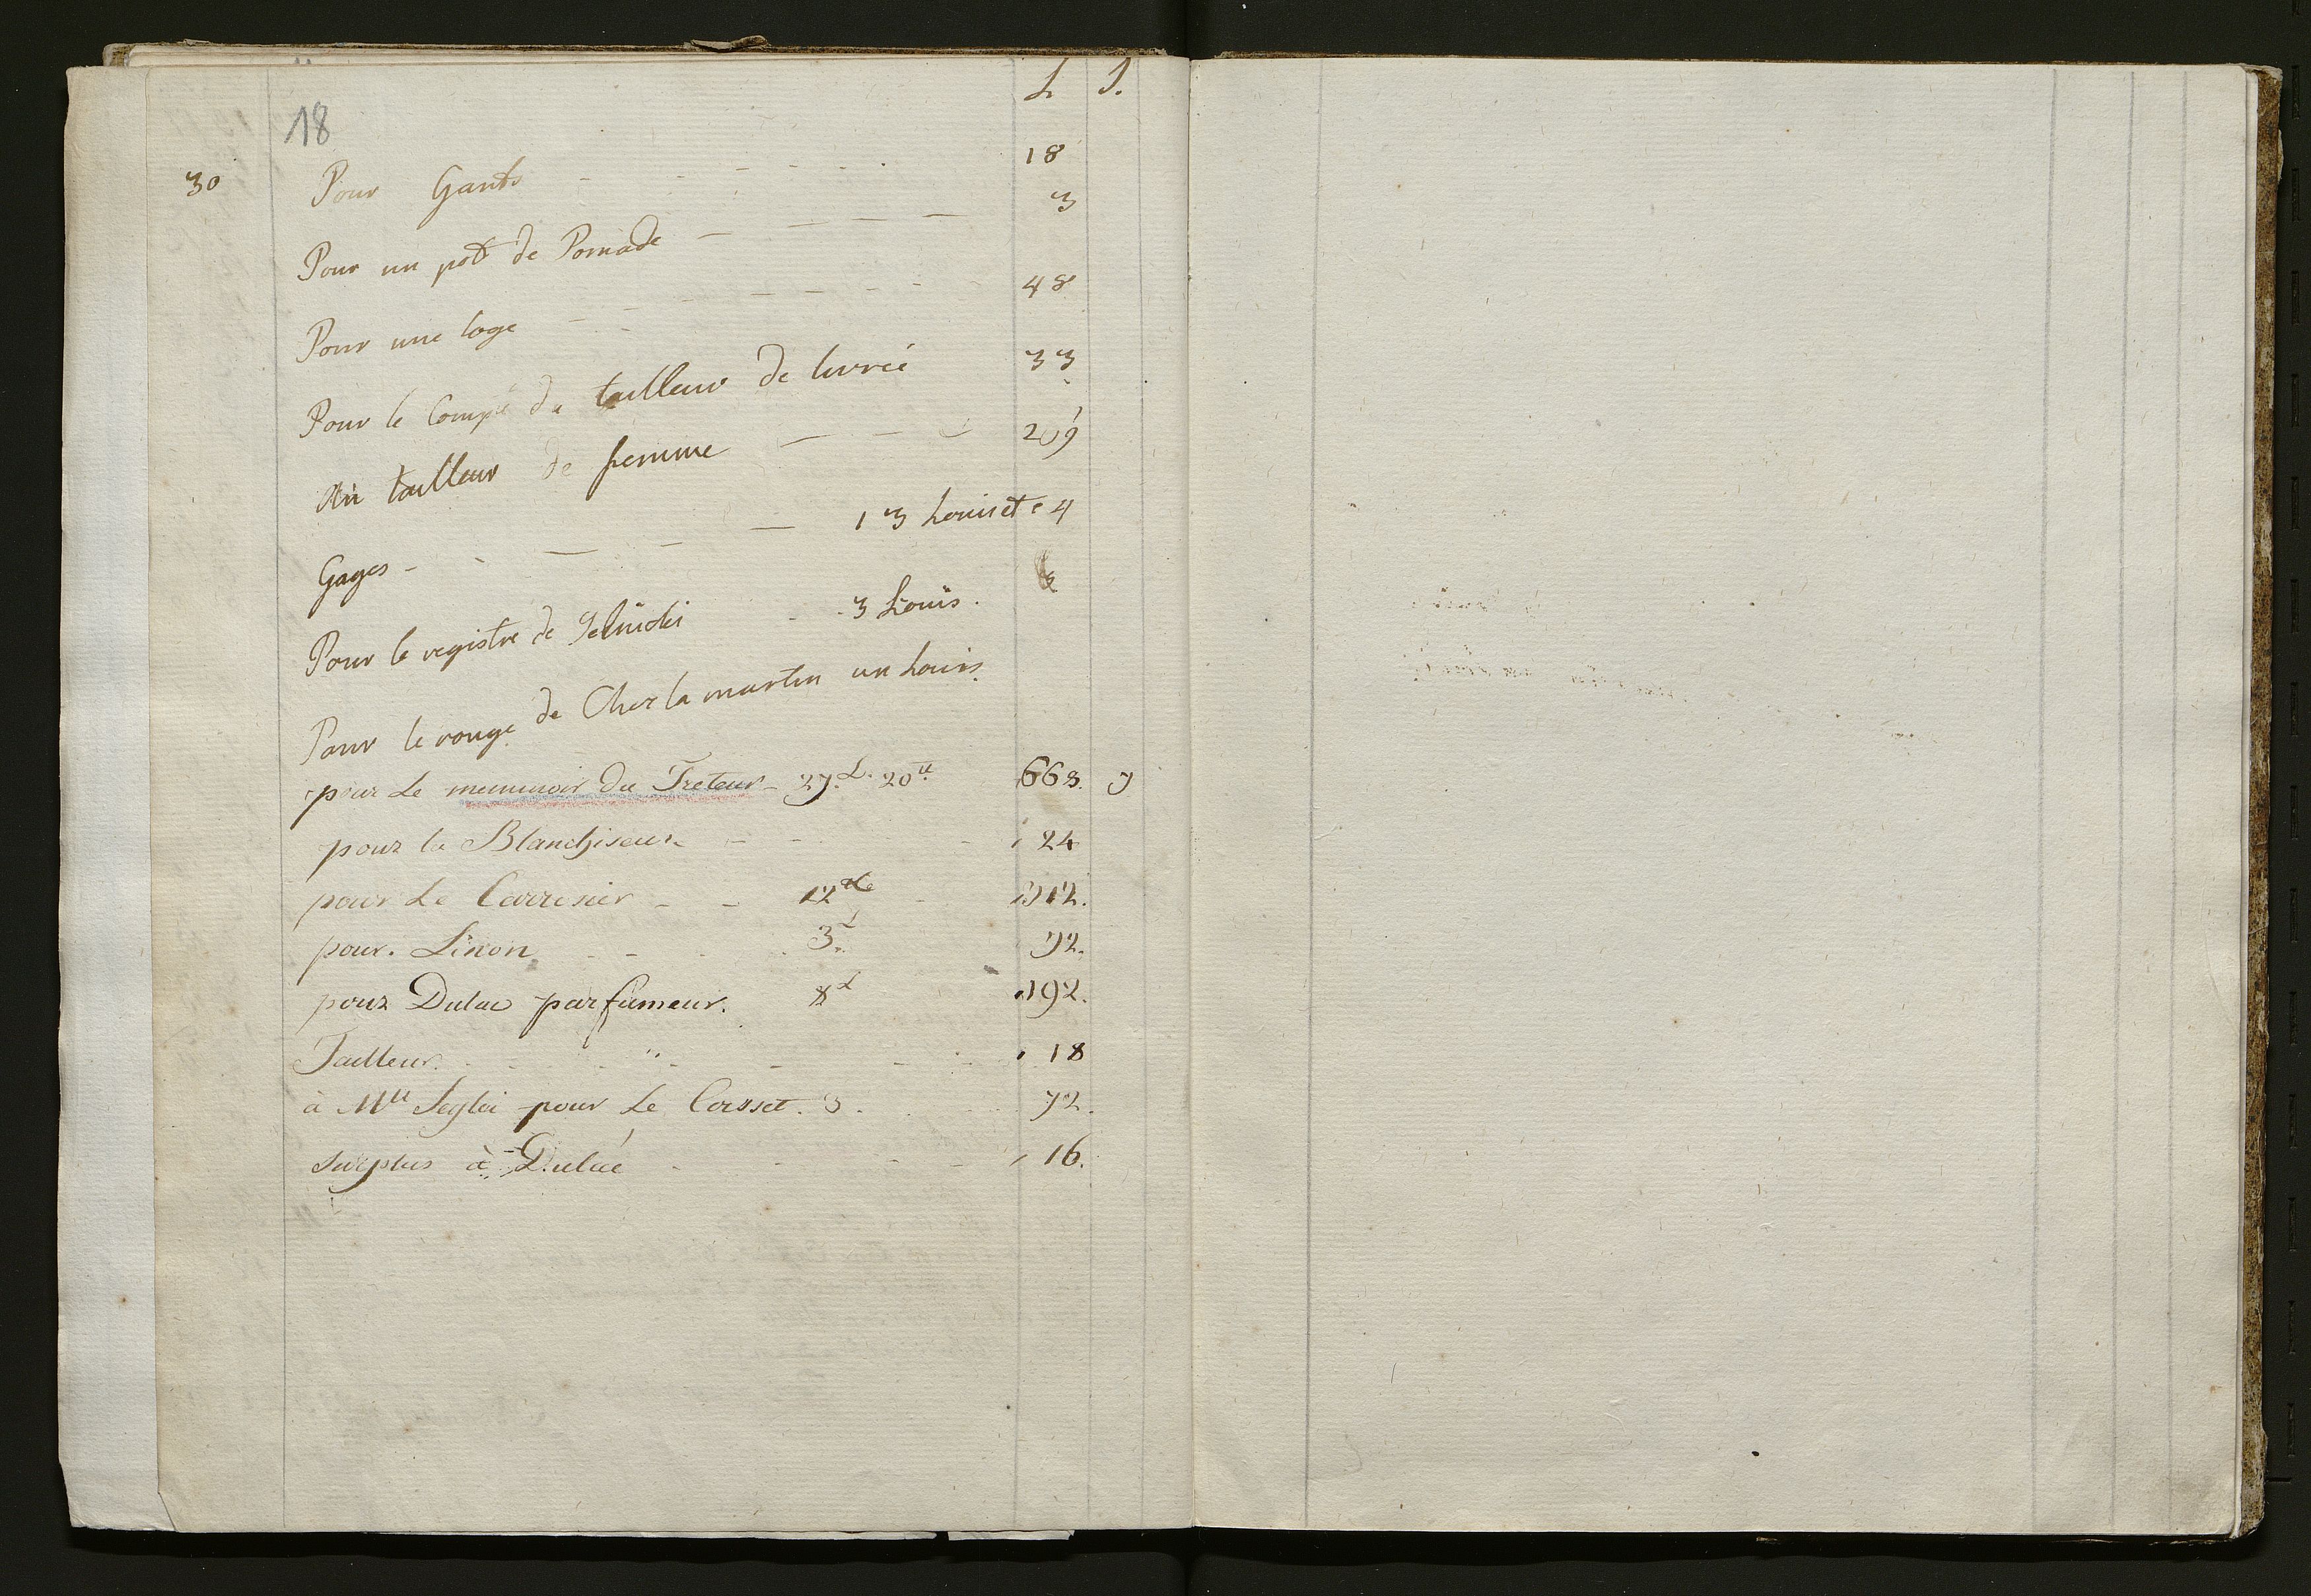 18
L S.
30 Pour Gants - - - - - 18
Pour un pot de Pomade - - - 3
Pour une loge - - - - - - 48
Pour le Compte du tailleur de livrée 33
Au tailleur de femme - - - 209
Gages - - - - - 13 Louis et 4
Pour le registre de - - 3 Louis.
Pour le rouge de Chez la martin un Louis.
pour Le memmoir du Treteur - 27 L. 20 ll 668. 7
pour la Blanchiseur - - - 24
pour Le Carrosier - - 12 - 312.
pour. Linon - - - 3 L 72.
pour Dulac parfumeur. 8 L 192.
Tailleur. - - - - - 18
à Mll Seglai pour Le Corsset. 3. 72.
surplus à Dulac - - - - 16.